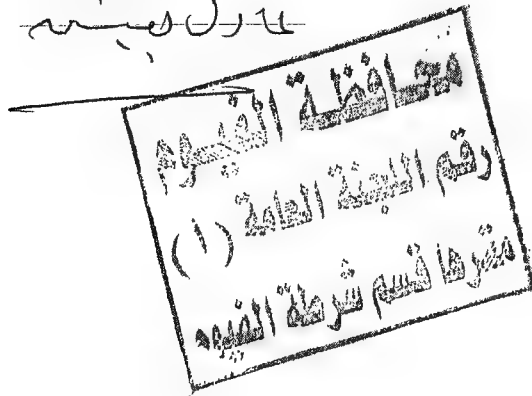 محافظة الفيوم
رقم اللجنة العامة (١)
مقرها قسم شرطة الفيوم